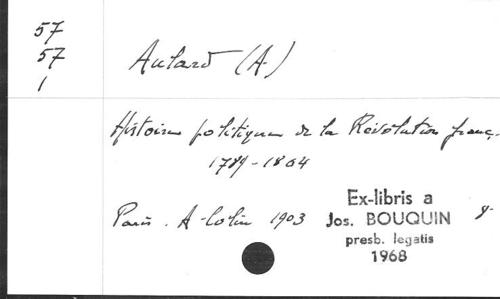 57
57
1
Aulard (A)
Histoire politique de la Révolution franç.
1789-1804
Paris. A-Colin 1903
8-
Ex-libris a
Jos. BOUQUIN
presb. legatis
1968